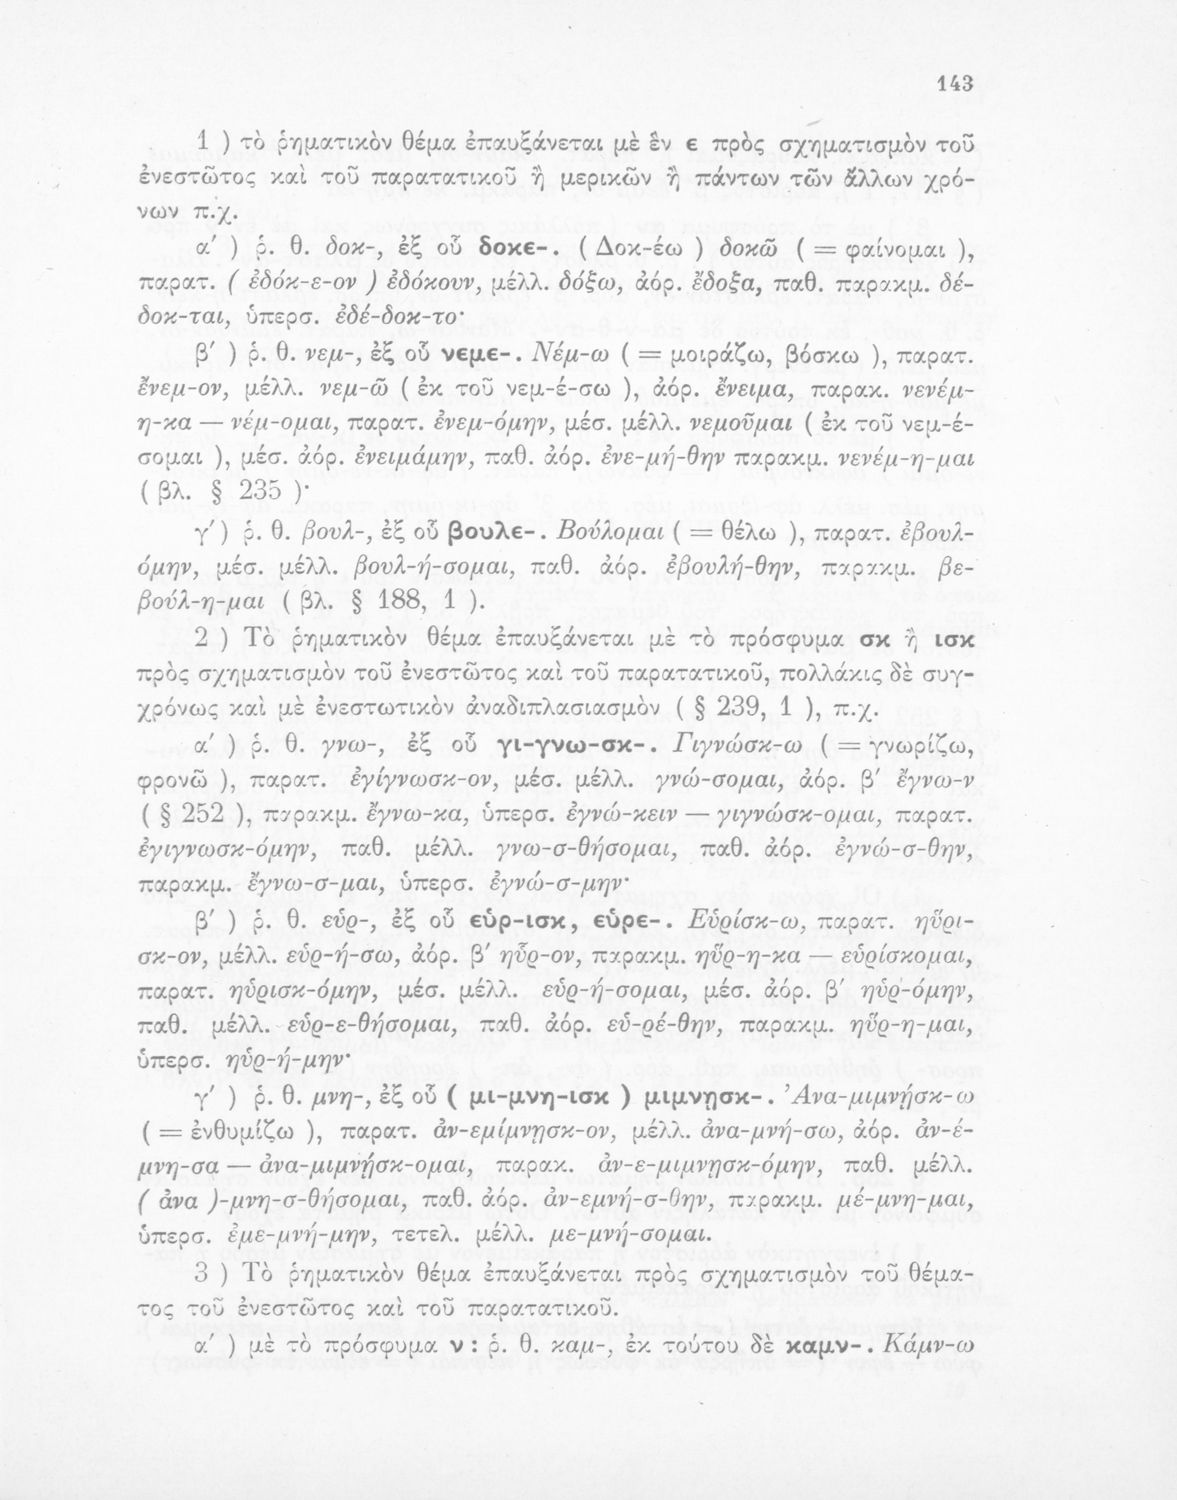 143
1 ) τὸ ῥηματικὸν θέμα ἐπαυξάνεται μὲ ἓν ε πρὸς σχηματισμὸν τοῦ
ἐνεστῶτος καὶ τοῦ παρατατικοῦ ἢ μερικῶν ἢ πάντων τῶν ἄλλων χρό-
νων π.χ.
α′ ) ῥ. θ. δοκ-, ἐξ οὗ δοκε-. ( Δοκ-έω ) δοκῶ ( = φαίνομαι ),
παρατ. ( ἐδόκ-ε-ον ) ἐδόκουν, μέλλ. δόξω, ἀόρ. ἔδοξα, παθ. παρακμ. δέ-
δοκ-ται, ὑπερσ. ἐδέ-δοκ-το·
β′ ) ῥ. θ. νεμ-, ἐξ οὗ νεμε-. Νέμ-ω ( = μοιράζω, βόσκω ), παρατ.
ἔνεμ-ον, μέλλ. νεμ-ῶ ( ἐκ τοῦ νεμ-έ-σω ), ἀόρ. ἔνειμα, παρακ. νενέμ-
η-κα — νέμ-ομαι, παρατ. ἐνεμ-όμην, μέσ. μέλλ. νεμοῦμαι ( ἐκ τοῦ νεμ-έ-
σομαι ), μέσ. ἀόρ. ἐνειμάμην, παθ. ἀόρ. ἐνε-μή-θην παρακμ. νενέμ-η-μαι
( βλ. § 235 )·
γ′ ) ῥ. θ. βουλ-, ἐξ οὗ βουλε-. Βούλομαι ( = θέλω ), παρατ. ἐβουλ-
όμην, μέσ. μέλλ. βουλ-ή-σομαι, παθ. ἀόρ. ἐβουλή-θην, παρακμ. βε-
βούλ-η-μαι ( βλ. § 188, 1 ).
2 ) Τὸ ῥηματικὸν θέμα ἐπαυξάνεται μὲ τὸ πρόσφυμα σκ ἢ ισκ
πρὸς σχηματισμὸν τοῦ ἐνεστῶτος καὶ τοῦ παρατατικοῦ, πολλάκις δὲ συγ-
χρόνως καὶ μὲ ἐνεστωτικὸν ἀναδιπλασιασμὸν ( § 239, 1 ), π.χ.
α′ ) ῥ. θ. γνω-, ἐξ οὗ γι-γνω-σκ-. Γιγνώσκ-ω ( = γνωρίζω,
φρονῶ ), παρατ. ἐγίγνωσκ-ον, μέσ. μέλλ. γνώ-σομαι, ἀόρ. β′ ἔγνω-ν
( § 252 ), παρακμ. ἔγνω-κα, ὑπερσ. ἐγνώ-κειν — γιγνώσκ-ομαι, παρατ.
ἐγιγνωσκ-όμην, παθ. μέλλ. γνω-σ-θήσομαι, παθ. ἀόρ. ἐγνώ-σ-θην,
παρακμ. ἔγνω-σ-μαι, ὑπερσ. ἐγνώ-σ-μην·
β′ ) ῥ. θ. εὑρ-, ἐξ οὗ εὑρ-ισκ, εὑρε-. Εὑρίσκ-ω, παρατ. ηὕρι-
σκ-ον, μέλλ. εὑρ-ή-σω, ἀόρ. β′ ηὗρ-ον, παρακμ. ηὕρ-η-κα — εὑρίσκομαι,
παρατ. ηὑρισκ-όμην, μέσ. μέλλ. εὑρ-ή-σομαι, μέσ. ἀόρ. β′ ηὑρ-όμην,
παθ. μέλλ. εὑρ-ε-θήσομαι, παθ. ἀόρ. εὑ-ρέ-θην, παρακμ. ηὕρ-η-μαι,
ὑπερσ. ηὑρ-ή-μην·
γ′ ) ῥ. θ. μνη-, ἐξ οὗ ( μι-μνη-ισκ ) μιμνῃσκ-. Ἀνα-μιμνῄσκ-ω
( = ἐνθυμίζω ), παρατ. ἀν-εμίμνῃσκ-ον, μέλλ. ἀνα-μνή-σω, ἀόρ. ἀν-έ-
μνη-σα — ἀνα-μιμνῄσκ-ομαι, παρακ. ἀν-ε-μιμνῃσκ-όμην, παθ. μέλλ.
( ἀνα )-μνη-σ-θήσομαι, παθ. ἀόρ. ἀν-εμνή-σ-θην, παρακμ. μέ-μνη-μαι,
ὑπερσ. ἐμε-μνή-μην, τετελ. μέλλ. με-μνή-σομαι.
3 ) Τὸ ῥηματικὸν θέμα ἐπαυξάνεται πρὸς σχηματισμὸν τοῦ θέμα-
τος τοῦ ἐνεστῶτος καὶ τοῦ παρατατικοῦ.
α′ ) μὲ τὸ πρόσφυμα ν : ῥ. θ. καμ-, ἐκ τούτου δὲ καμν-. Κάμν-ω